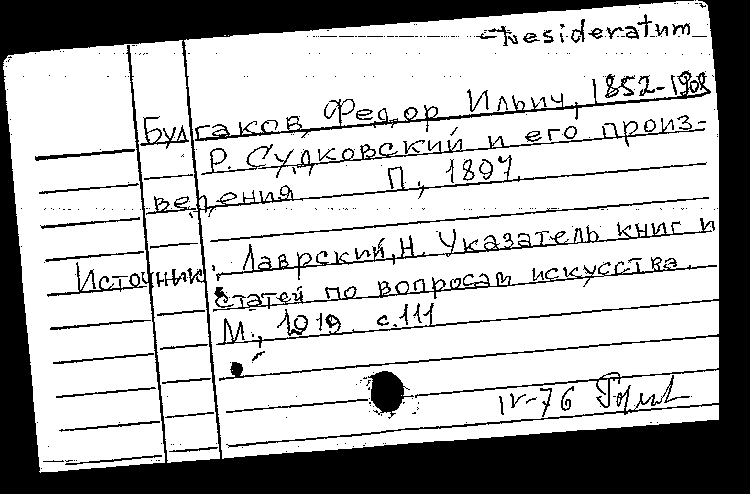 Desideratum
Булгаков, Федор Ильич, 1852-1908
Р. Судковский и его произ-
ведения П., 1897.
Источник: Лаврский, Н. Указатель книг и
статей по вопросам искусства.
М., 1919. с.111
IV-76